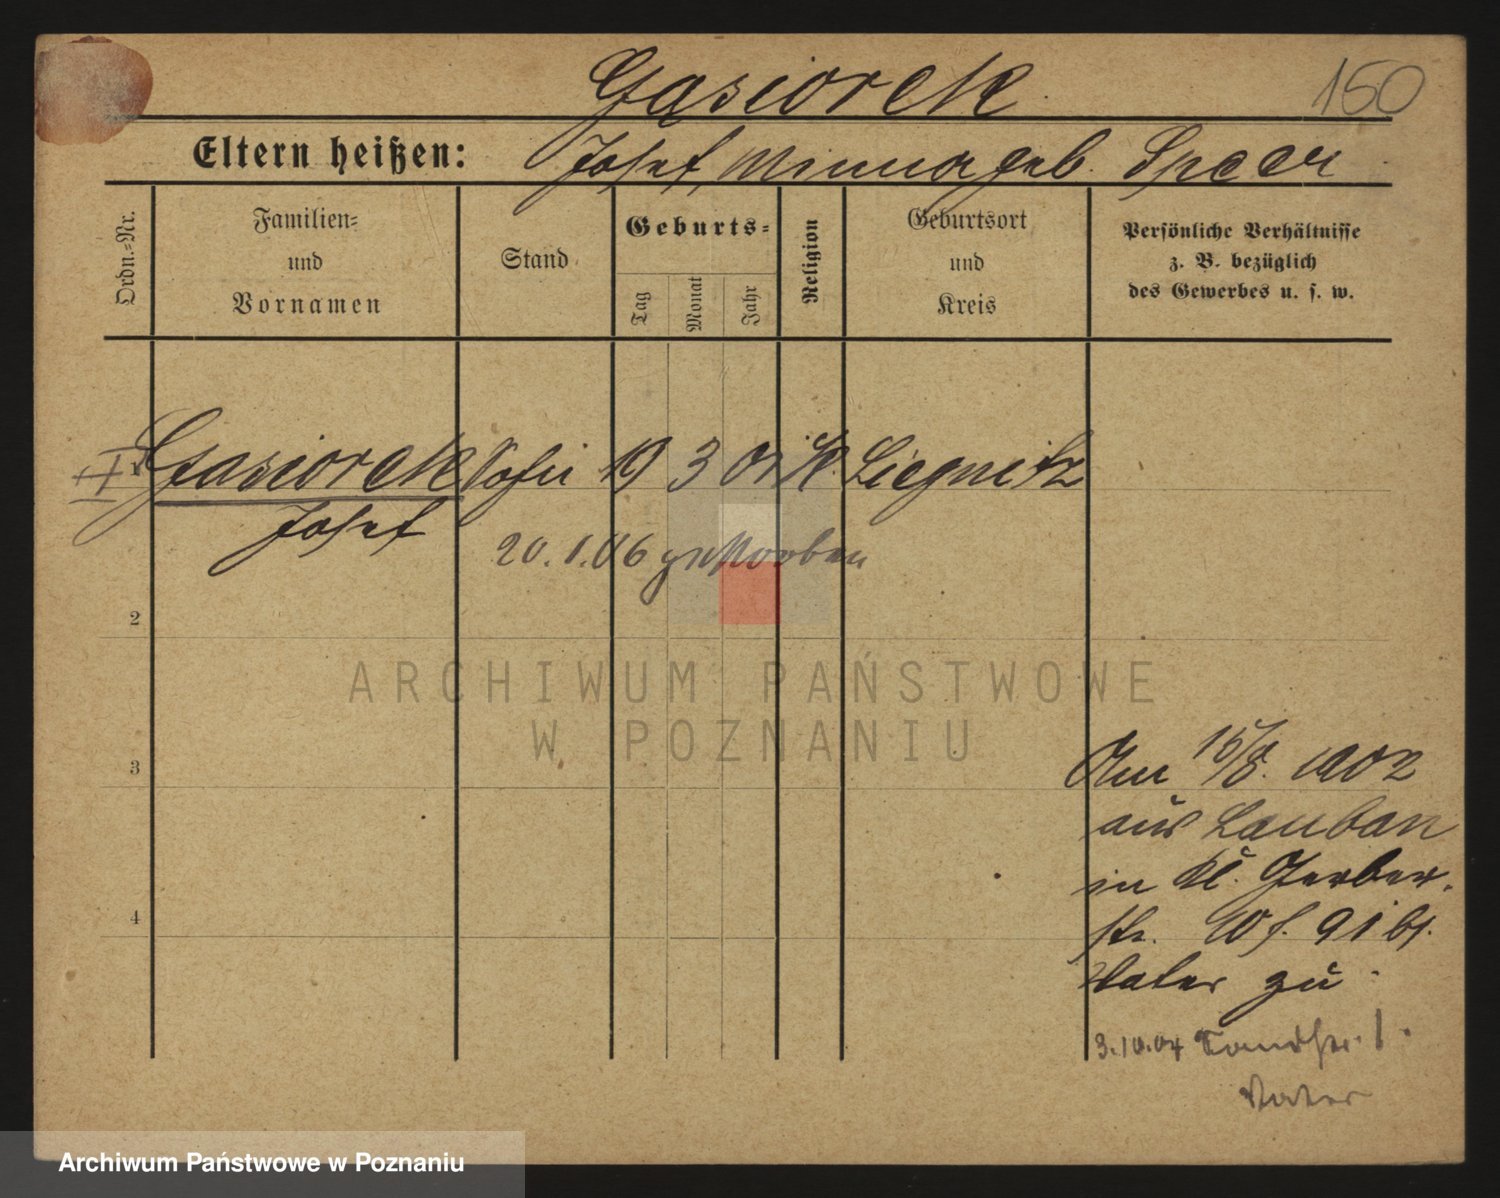 Gąsiorek 150
Eltern heißen: Josef, Minna geb. Speer
Ordn.-Nr.
Familien-
und
Vornamen
Stand
Geburts-
Tag
Monat
Jahr
Religion
Geburtsort
und
Kreis
Persönliche Verhältnisse
z. B. bezüglich
des Gewerbes u. s. w.
1 Gąsiorek 19 3 01 k. Liegnitz
Josef
20.1.06 gestorben
2
ARCHIWUM PAŃSTWOWE
W POZNANIU
3
Am 15/8. 1902
aus Lauban
in Kl. Gerber-
4
str. 10 f. 91 bf.
Vater zu
3.10.04 Sandstr. 1.
Vater
Archiwum Państwowe w Poznaniu